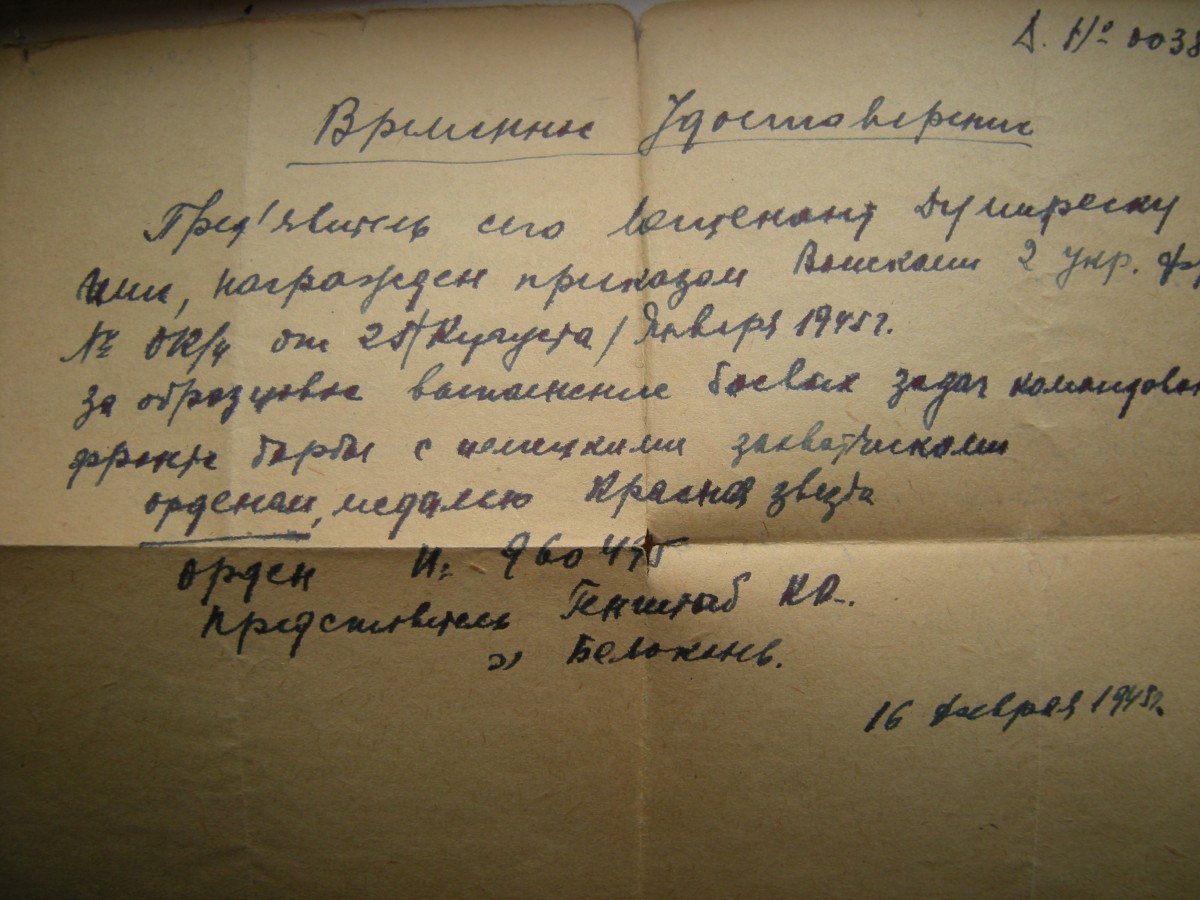 Д. № 0038
Временное Удостоверение
Пред'явитель сего Лейтенант Думитреску
награжден приказом Войсками 2 Укр. фр
№ ОК/4 от 25/Августа/Января 1945 г.
за образцовое выполнение боевых задач командован
фронте борбы с немецкими захватчиками
орденом, медалею Красная звезда
орден №: 960475
Представитель Генштаб КА.
Белоконь.
16 февраля 1945 г.